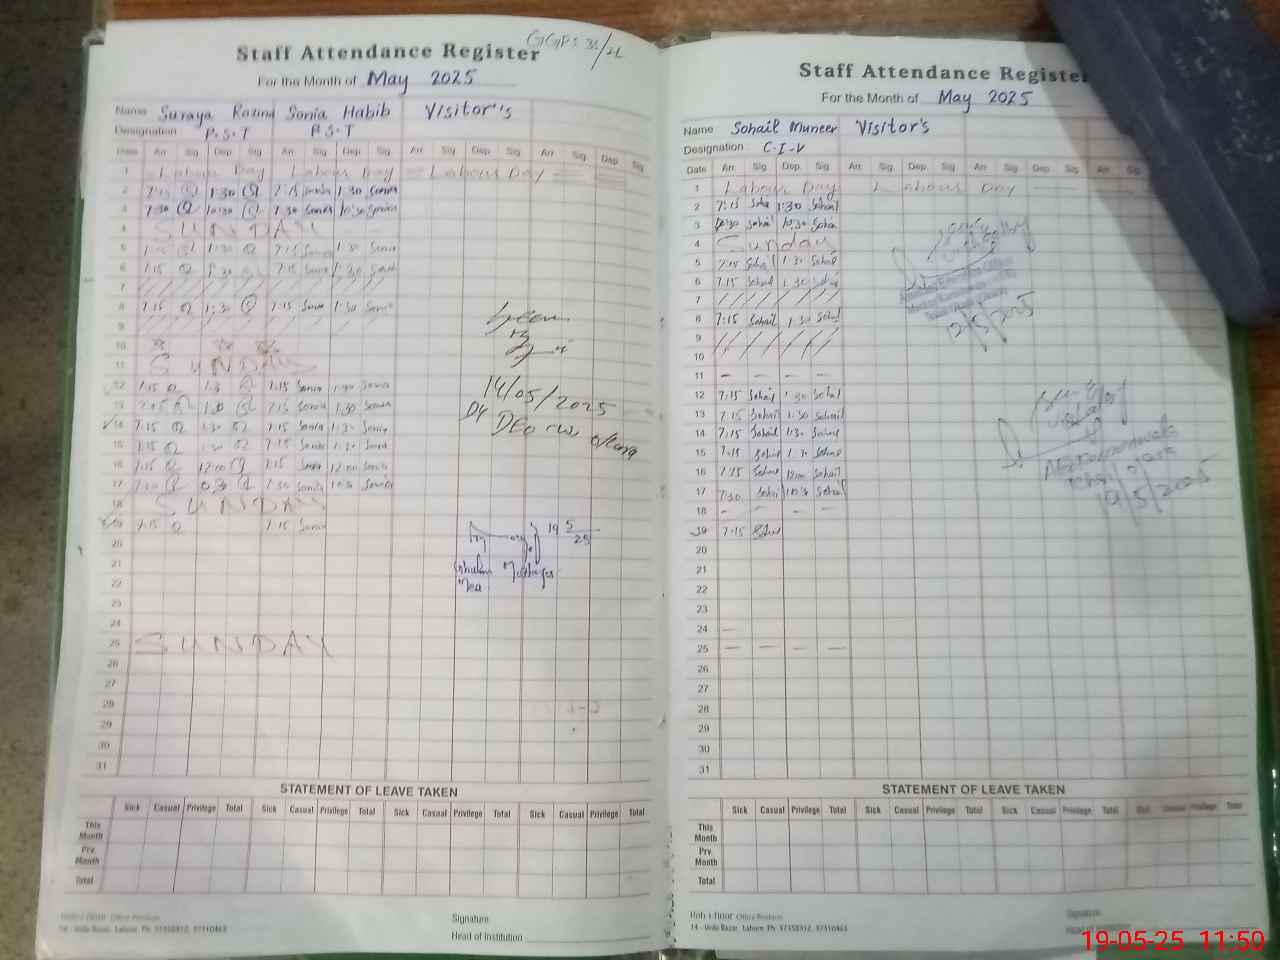 GGPS 31/2L
Staff Attendance Register
For the Month of May 2025
Name Suraya Sonia Habib Visitor's
Designation P.S.T P.S.T
Date Arr Sig Dep Sig Arr Sig Dep Sig Arr Sig Dep Sig Arr Sig Dep Sig
1 Labour Day Labour Day Labour Day
2 7:15 1:30 7:15 Sonia 1:30 Sonia
3 7:30 10:30 7:30 Sonia 10:30 Sonia
4 SUNDAY
5 7:15 1:30 7:15 Sonia 1:30 Sonia
6 7:15 1:30 7:15 Sonia 1:30 Sonia
7
8 7:15 1:30 7:15 Sonia 1:30 Sonia
9
10
11 SUNDAY
12 7:15 1:30 7:15 Sonia 1:30 Sonia
13 7:15 1:30 7:15 Sonia 1:30 Sonia
14/05/2025
14 7:15 1:30 7:15 Sonia 1:30 Sonia
Dy DEO
15 7:15 1:30 7:15 Sonia 1:30 Sonia
16 7:15 12:00 7:15 Sonia 12:00 Sonia
17 7:30 10:30 7:30 Sonia 10:30 Sonia
18 SUNDAY
19 7:15 7:15 Sonia
19 5/25
20
21
22
23
24
25 SUNDAY
26
27
28
29
30
31
STATEMENT OF LEAVE TAKEN
Sick Casual Privilege Total Sick Casual Privilege Total Sick Casual Privilege Total Sick Casual Privilege Total
This Month
Prv. Month
Total
Office Products
14 - Urdu Bazar, Lahore. Ph: 37358912, 37310463
Signature
Head of Institution
Staff Attendance Register
For the Month of May 2025
Name Sohail Muneer Visitor's
Designation C-I-V
Date Arr Sig Dep. Sig Arr Sig Dep. Sig Arr Sig Dep Sig
1 Labour Day Labour Day
2 7:15 Sohail 1:30 Sohail
3 7:30 Sohail 10:30 Sohail
4 Sunday
5 7:15 Sohail 1:30 Sohail
6 7:15 Sohail 1:30 Sohail
7
8 7:15 Sohail 1:30 Sohail
12/5/2025
9
10
11 - - - -
12 7:15 Sohail 1:30 Sohail
13 7:15 Sohail 1:30 Sohail
14 7:15 Sohail 1:30 Sohail
15 7:15 Sohail 1:30 Sohail
16 7:15 Sohail 12:00 Sohail
17 7:30 Sohail 10:30 Sohail
19/5/2025
18 - - - -
19 7:15 Sohail
20
21
22
23
24 -
25 - - - -
26
27
28
29
30
31
STATEMENT OF LEAVE TAKEN
Sick Casual Privilege Total Sick Casual Privilege Total Sick Casual Privilege Total Sick Casual Privilege Total
This Month
Prv. Month
Total
Roh-i-Noor Office Products
14 - Urdu Bazar, Lahore. Ph: 37358912, 37310463
Signature
Head of Institution
19-05-25 11:50